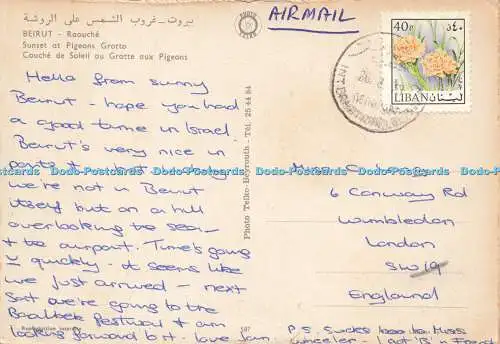 بيروت - غروب الشمس على الروشة
BEIRUT - Raouché
Sunset at Pigeons Grotto
Couché de Soleil au Grotte aux Pigeons
AIRMAIL
40P
٤٠ ل.ق
LIBAN لبنان
Hello from sunny
Beirut - hope you had
a good time in Israel
Beirut's very nice in
parts
we're not in Beirut
itself but on a hill
overlooking the sea
& the airport. Time's going
v quickly - it seems like
we just arrived - next
Sat we're going to the
Baalbek Festival & am
looking forward to it. Love Jan
Photo Telko-Beyrouth - Tél. 25 44 84
6 Conway Rd
Wimbledon
London
SW19
England
P.S. Sucks boo to Miss
Wheeler - I got 'B' in French
Reproduction interdite
507
Dodo-Postcards Dodo-Postcards Dodo-Postcards Dodo-Postcards Dodo-Postcards